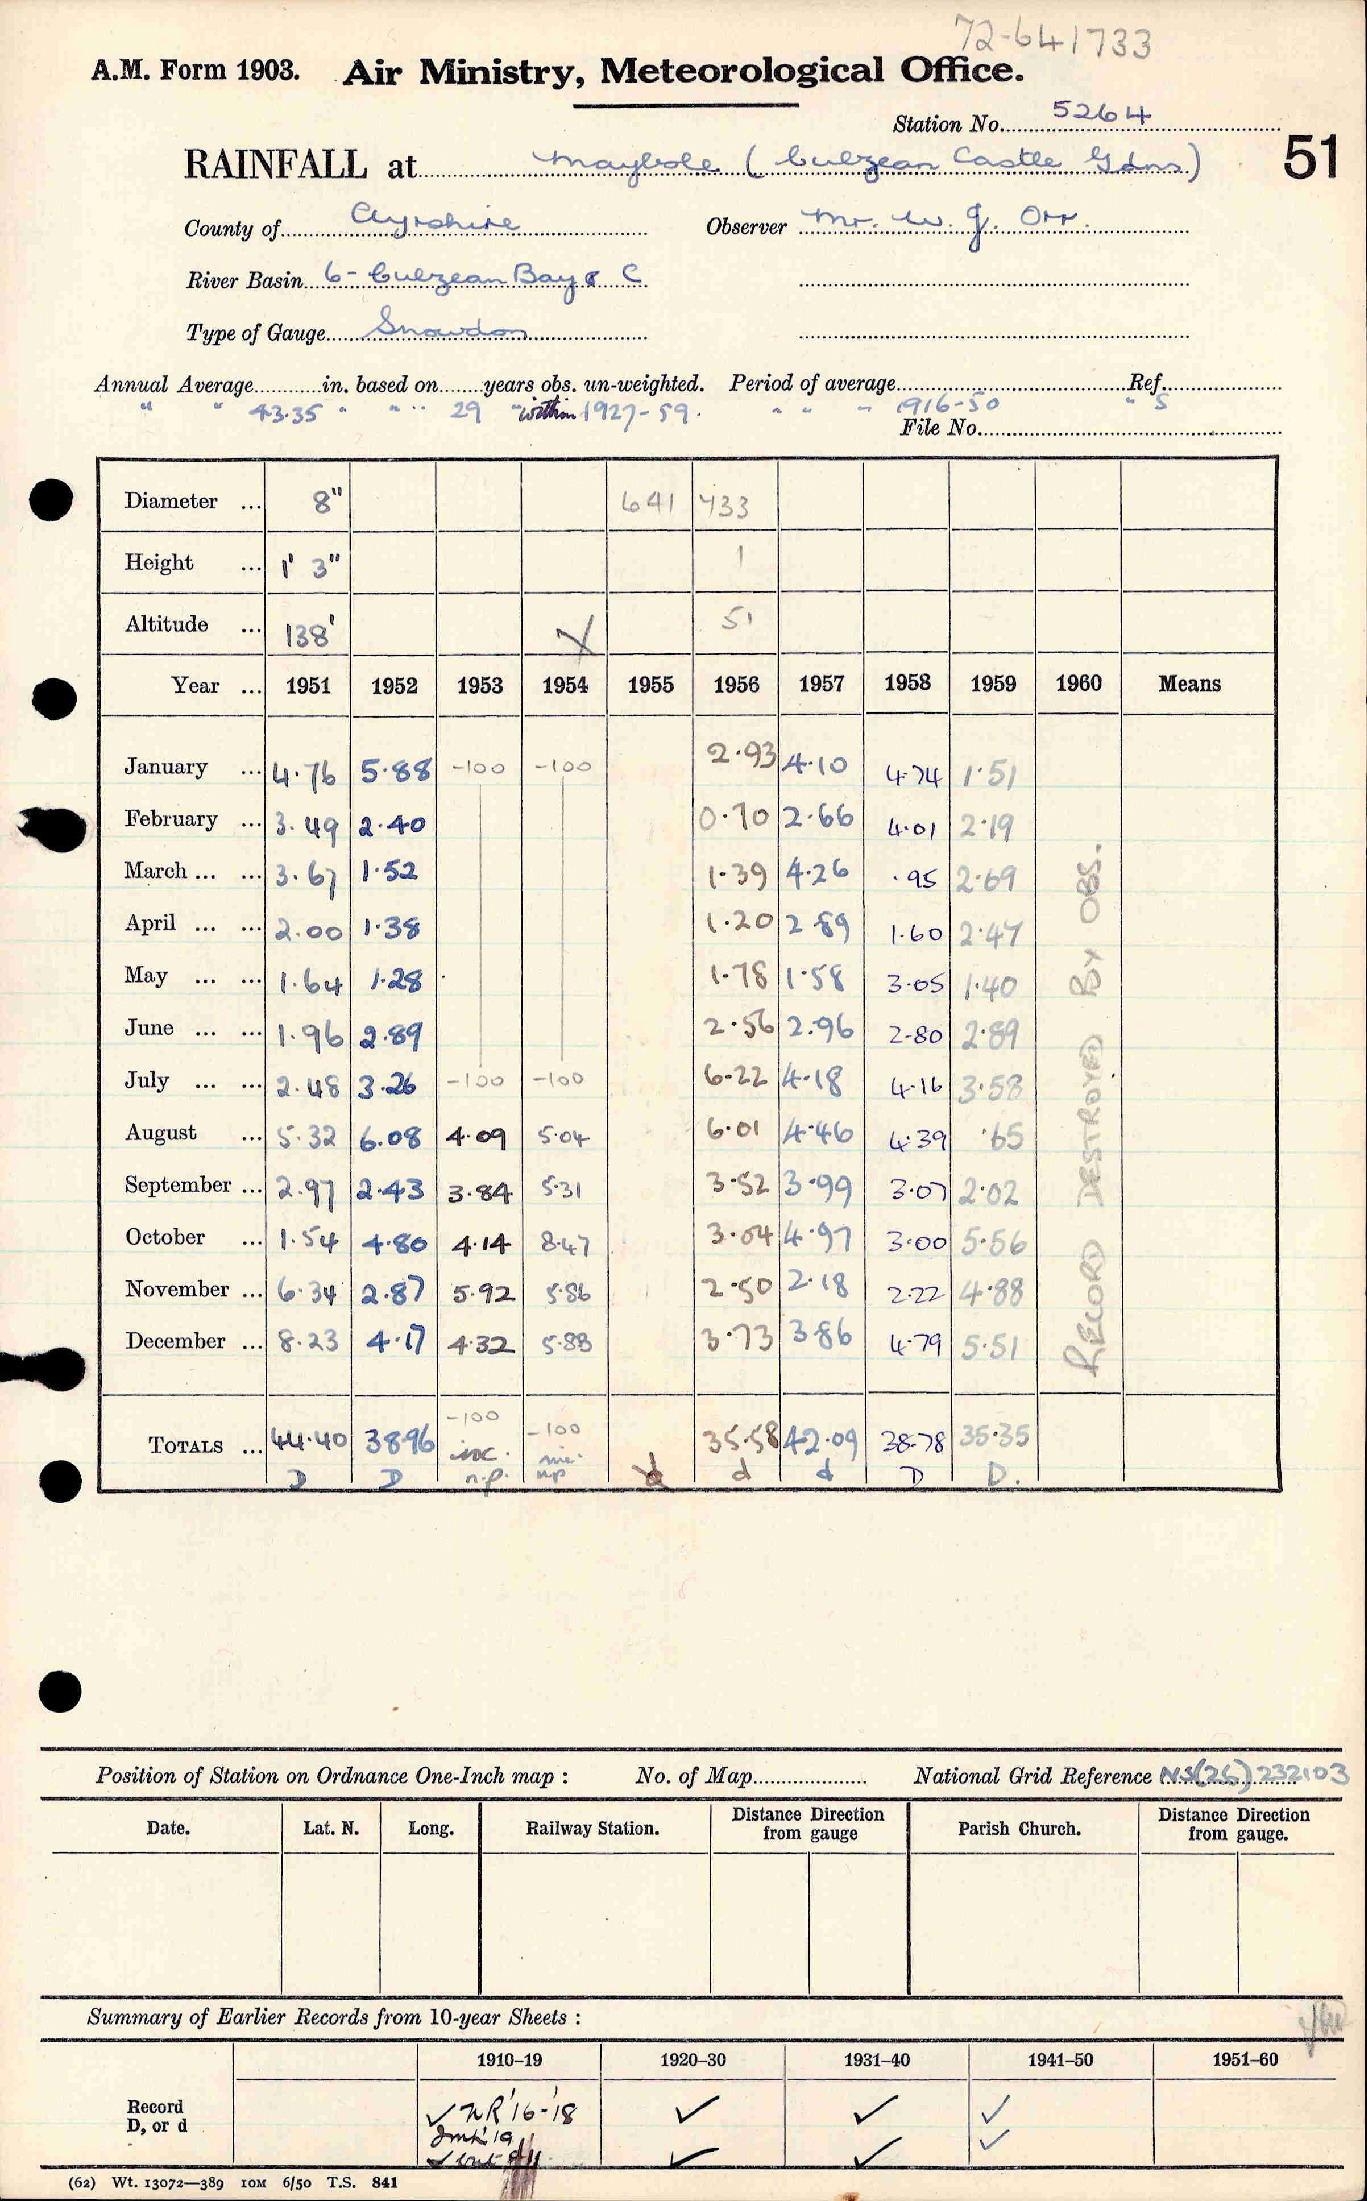 72-641733
A.M. Form 1903. Air Ministry, Meteorological Office.
Station No. 5264
51
RAINFALL at Maybole (Culzean Castle Gdns)
County of Ayrshire Observer Mr. W. J. Orr.
River Basin 6- Culzean Bay & C
Type of Gauge Snowdon
Annual Average in. based on years obs. un-weighted. Period of average Ref.
" " 43.35 " " " 29 " within 1927-59. " " " 1916-50 " S
File No.
Diameter ... 8" 641 733
Height ... 1' 3" 1
Altitude ... 138' 51
Year ... 1951 1952 1953 1954 1955 1956 1957 1958 1959 1960 Means
January ... 4.76 5.88 -100 -100 2.93 4.10 4.74 1.51
February ... 3.49 2.40 0.70 2.66 4.01 2.19
March ... ... 3.67 1.52 1.39 4.26 .95 2.69
April ... ... 2.00 1.38 1.20 2.89 1.60 2.47
May ... ... 1.64 1.28 1.78 1.58 3.05 1.40
June ... ... 1.96 2.89 2.56 2.96 2.80 2.89
July ... ... 2.48 3.26 -100 -100 6.22 4.18 4.16 3.58
August ... 5.32 6.08 4.09 5.04 6.01 4.46 4.39 .65
September ... 2.97 2.43 3.84 5.31 3.52 3.99 3.07 2.02
October ... 1.54 4.80 4.14 8.47 3.04 4.97 3.00 5.56
November ... 6.34 2.87 5.92 5.86 2.50 2.18 2.22 4.88
December ... 8.23 4.17 4.32 5.88 3.73 3.86 4.79 5.51
RECORD DESTROYED BY OBS.
TOTALS ... 44.40 38.96 -100 -100 35.58 42.09 38.78 35.35
inc. inc.
D D n.p. n.p. d d d D D.
Position of Station on Ordnance One-Inch map : No. of Map National Grid Reference NS(26)232103
Date. Lat. N. Long. Railway Station. Distance Direction from gauge Parish Church. Distance Direction from gauge.
Summary of Earlier Records from 10-year Sheets :
1910–19 1920–30 1931–40 1941–50 1951–60
Record
D, or d
✓ NR '16-'18 ✓ ✓ ✓
✓ ✓ ✓ ✓
(62) Wt. 13072—389 10M 6/50 T.S. 841